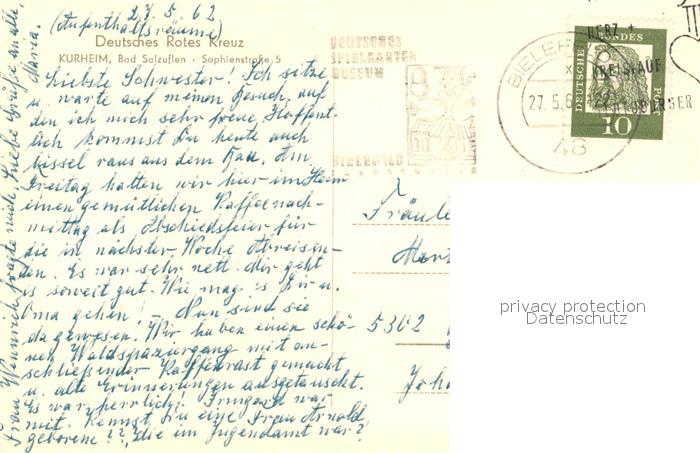 27.5.62
(Aufenthaltsräume)
Deutsches Rotes Kreuz
KURHEIM, Bad Salzuflen · Sophienstraße 5
Liebste Schwester! Ich sitze
u. warte auf meinen Besuch, auf
den ich mich sehr freue. Hoffent-
lich kommst Du heute auch
bissel raus aus dem Bau. Am
Freitag hatten wir hier im Heim
einen gemütlichen Kaffeenach-
mittag als Abschiedsfeier für
die in nächster Woche Abreisen-
den. Es war sehr nett. Mir geht
is soweit gut. Wie mag is Dir u.
Oma gehen! – Nun sind sie
dagewesen. Wir haben einen schö-
nen Waldspaziergang mit an-
schließender Kaffeerast gemacht
u. alte Erinnerungen ausgetauscht.
Es war herrlich! Irmgard war
mit. Kennst Du eine Frau Arnold
geborene ??, die im Jugendamt war?
Frau Wennrich fragte mich. Liebe Grüße an alle,
Maria.
DEUTSCHES
SPIELKARTEN
MUSEUM
BIELEFELD
BIELEFELD
27.5.6
48
HERZ +
KREISLAUF
DEUTSCHE
BUNDES
POST
10
Fräule
5302
Joh
privacy protection
Datenschutz